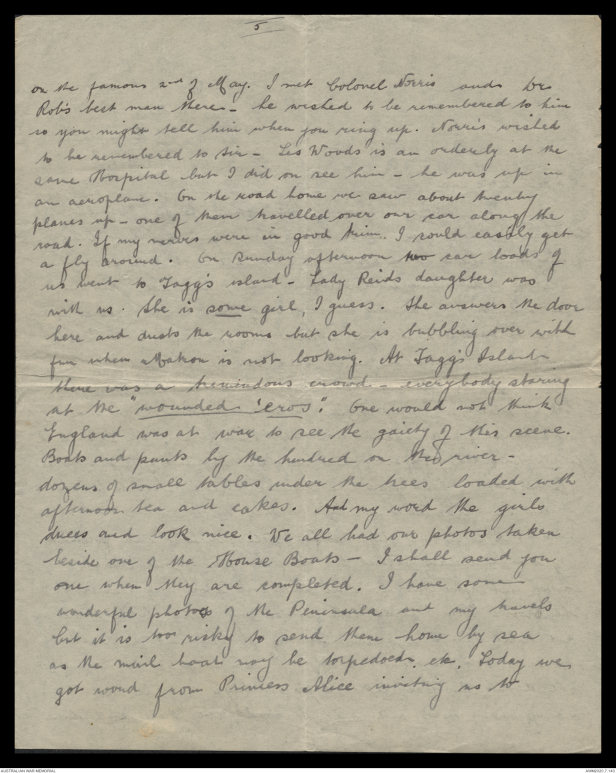 5
on the famous 2nd of May. I met Colonel Norris and Dr
Rob's best man there - he wished to be remembered to him
so you might tell him when you ring up. Norris wished
to be remembered to Sir - Les Woods is an orderly at the
same Hospital but I did on see him - he was up in
an aeroplane. On the road home we saw about twenty
planes up - one of them travelled over our car along the
road. If my nerves were in good trim. I could easily get
a fly around. On Sunday afternoon two car loads of
us went to Tagg's island - Lady Reids daughter was
with us. She is some girl, I guess. She answers the door
here and dusts the rooms but she is bubbling over with
fun when Matron is not looking. At Tagg's Island
there was a tremendous crowd - everybody staring
at the "wounded 'eros". One would not think
England was at war to see the gaiety of this scene.
Boats and punts by the hundred on the river -
dozens of small tables under the trees loaded with
afternoon tea and cakes. And my word the girls
dress and look nice. We all had our photos taken
beside one of the House Boats - I shall send you
one when they are completed. I have some
wonderful photos of the Peninsula and my travels
but it is too risky to send them home by sea
as the mail boat may be torpedoed. etc. Today we
got word from Princess Alice inviting us to
AUSTRALIAN WAR MEMORIAL